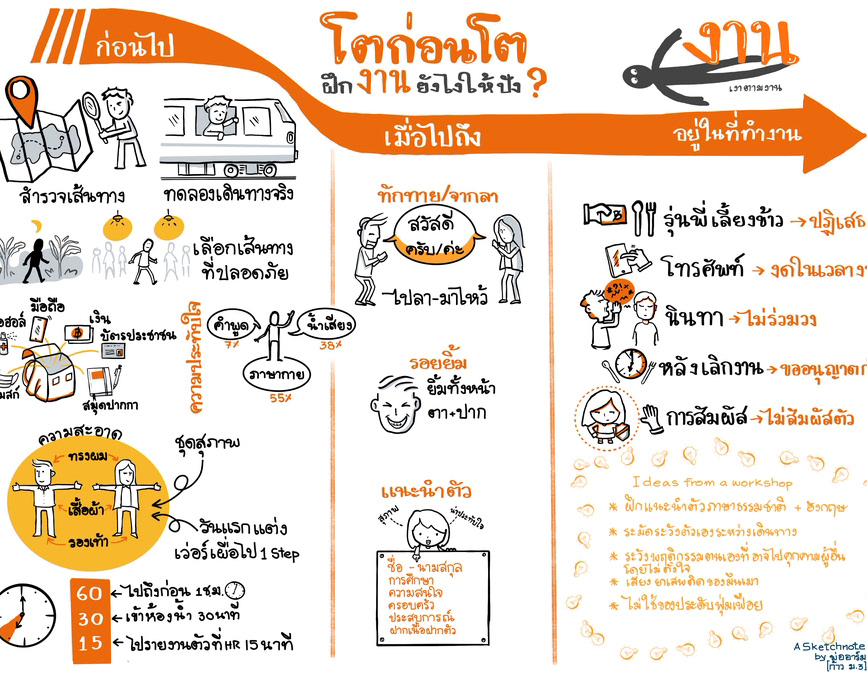 ก่อนไป
โตก่อนโต
ฝึกงานยังไงให้ปัง?
งาน
เงาตามงาน
เมื่อไปถึง
อยู่ในที่ทำงาน
สำรวจเส้นทาง
ทดลองเดินทางจริง
เลือกเส้นทาง
ที่ปลอดภัย
มือถือ
เงิน
บัตรประชาชน
สมุดปากกา
ความประทับใจ
คำพูด
7%
น้ำเสียง
38%
ภาษากาย
55%
ความสะอาด
ทรงผม
เสื้อผ้า
รองเท้า
ชุดสุภาพ
วันแรกแต่ง
เว่อร์เผื่อไป 1 Step
60 ← ไปถึงก่อน 1 ชม.
30 ← เข้าห้องน้ำ 30 นาที
15 ← ไปรายงานตัวที่ HR 15 นาที
ทักทาย/จากลา
สวัสดี
ครับ/ค่ะ
ไปลา-มาไหว้
รอยยิ้ม
ยิ้มทั้งหน้า
ตา+ปาก
แนะนำตัว
สุภาพ
น่าประทับใจ
ชื่อ - นามสกุล
การศึกษา
ความสนใจ
ครอบครัว
ประสบการณ์
ฝากเนื้อฝากตัว
รุ่นพี่เลี้ยงข้าว → ปฏิเสธ
โทรศัพท์ → งดในเวลา
นินทา → ไม่ร่วมวง
หลังเลิกงาน → ขออนุญาต
การสัมผัส → ไม่สัมผัสตัว
Ideas from a workshop
* ฝึกแนะนำตัวภาษาธรรมชาติ + อังกฤษ
* ระมัดระวังตัวเองระหว่างเดินทาง
* ระวังพฤติกรรมตนเองที่อาจไปคุกคามผู้อื่น
โดยไม่ตั้งใจ
* เลี่ยงยาเสพติดของมึนเมา
* ไม่ใช้ของประดับฟุ่มเฟือย
A Sketchnote
by พ่ออาร์ม
[ก้าว ม.3]